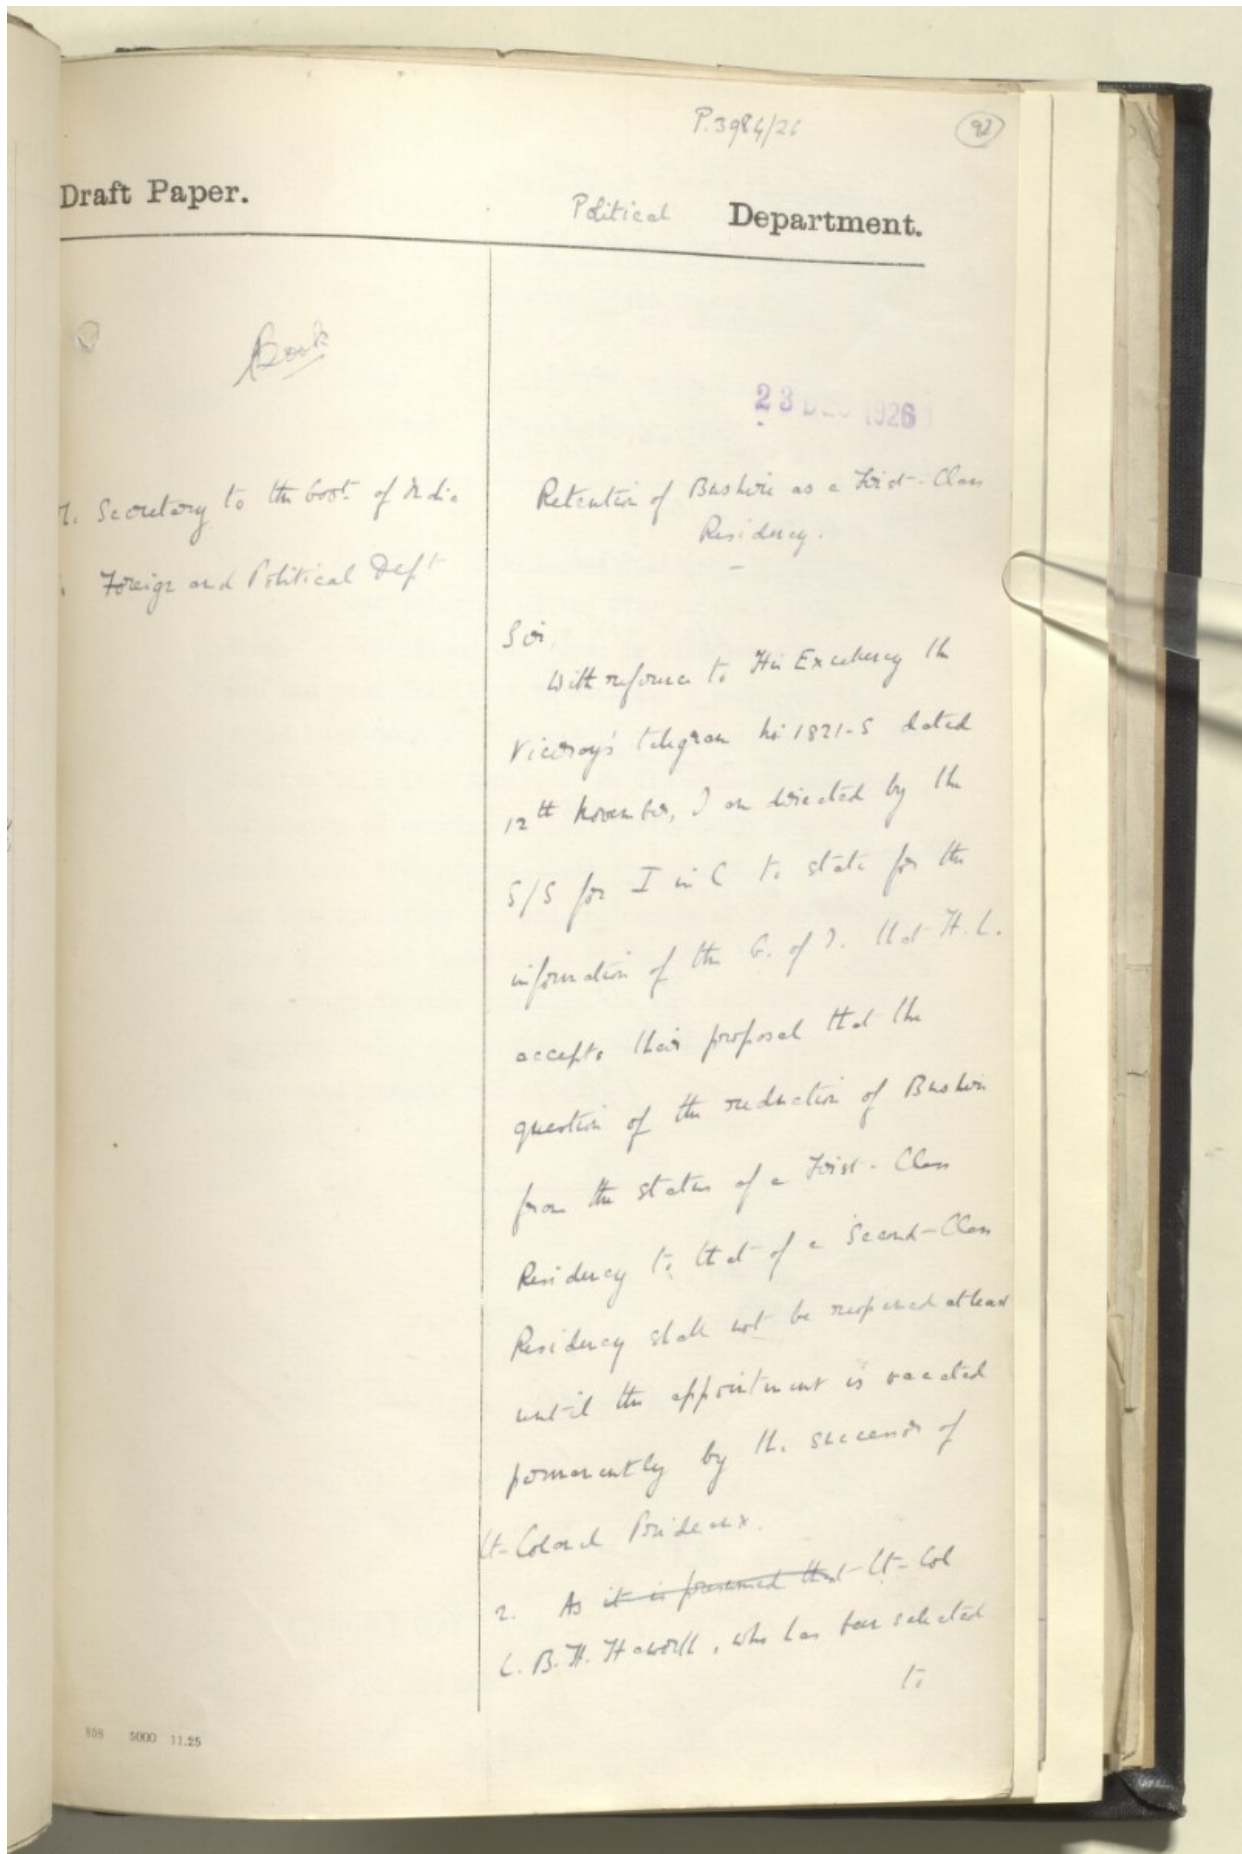 P.3984/26
92
Draft Paper.
Political Department.
Book
23 DEC 1926
Secretary to the Govt of India
Foreign and Political Dept
Retention of Bushire as a First-Class
Residency.
Sir,
With reference to His Excellency the
Viceroy's telegram No 1821-S dated
12th November, I am directed by the
S/S for I in C to state for the
information of the G. of I. that H.L.
accepts their proposal that the
question of the reduction of Bushire
from the status of a First-Class
Residency to that of a Second-Class
Residency shall not be reopened at least
until the appointment is vacated
permanently by the successor of
Lt-Colonel Prideaux.
2. As it is presumed that Lt-Col
L.B.H. Haworth, who has been selected
to
808 5000 11.25